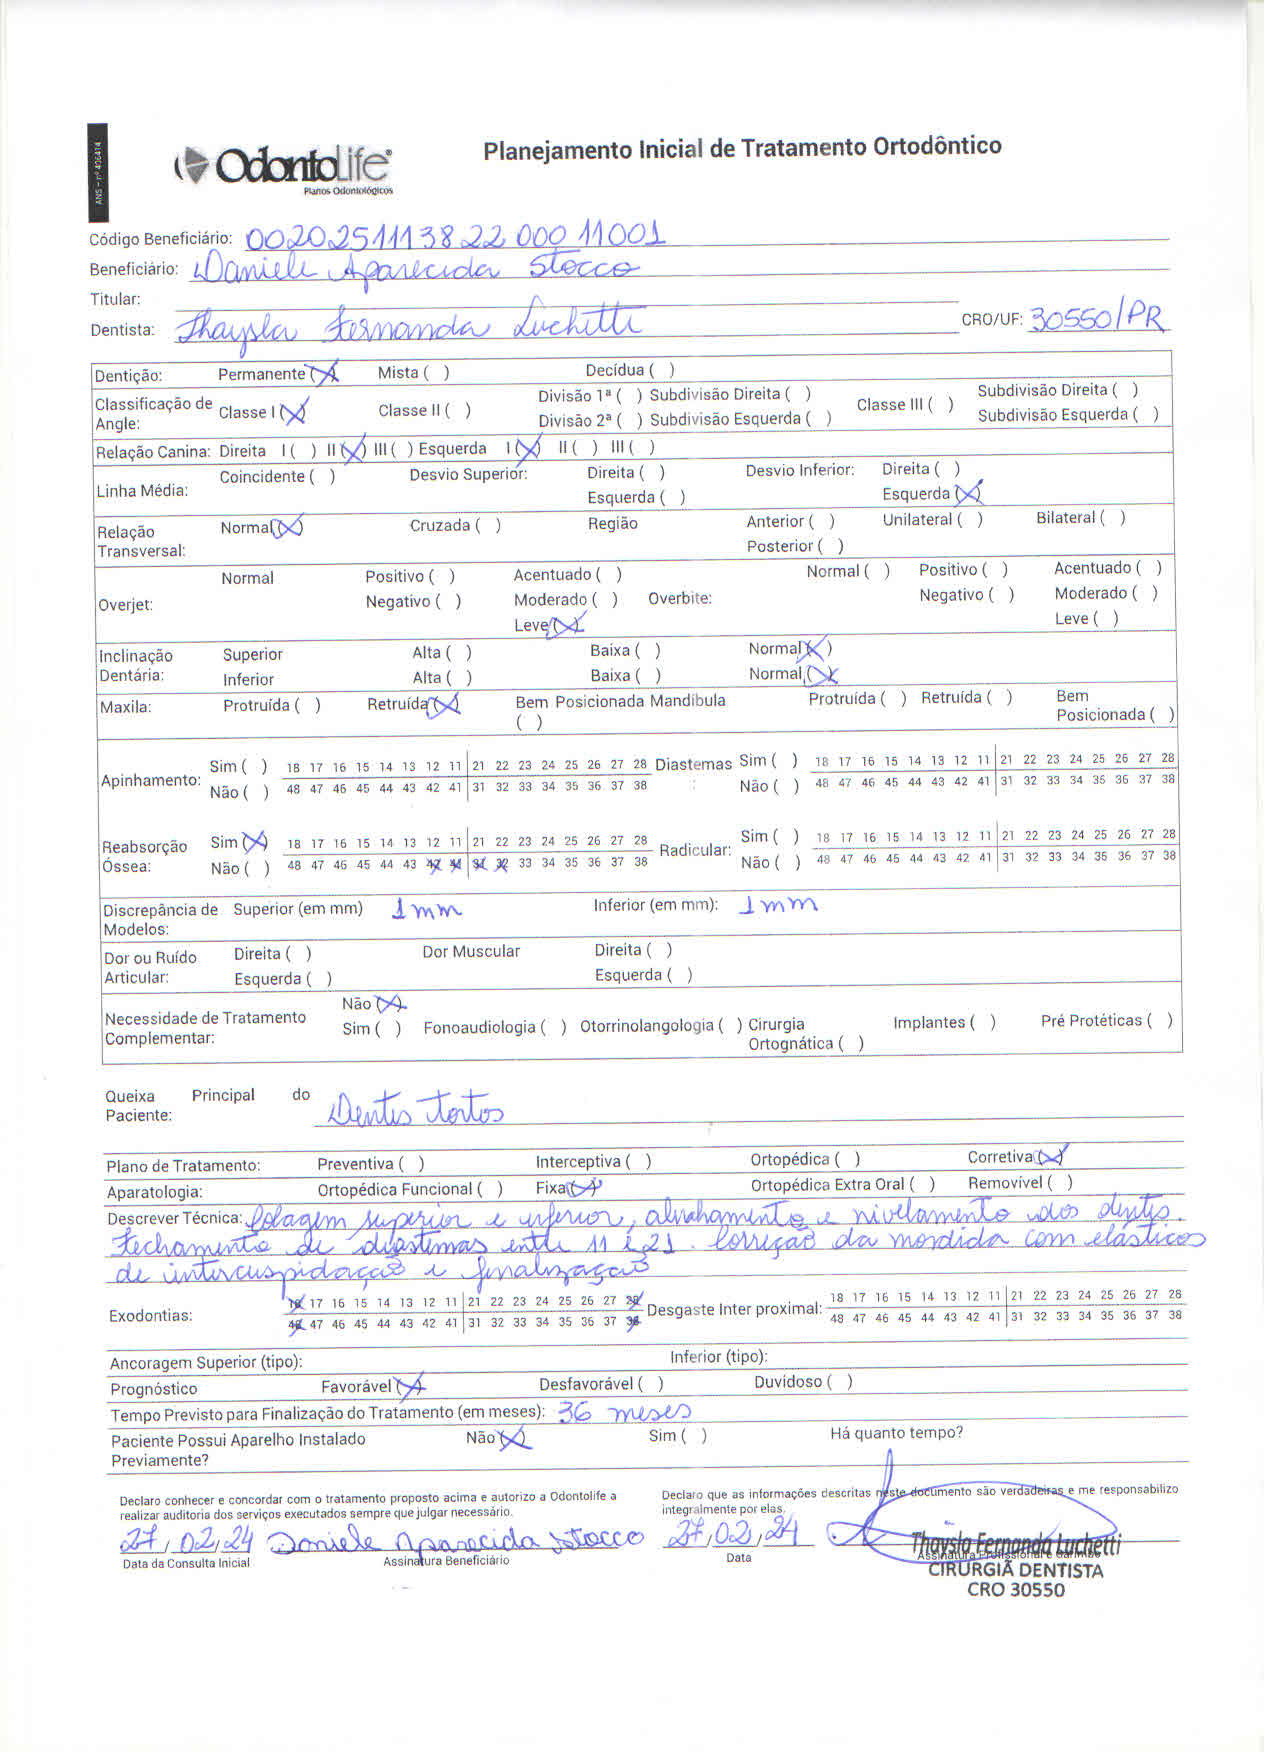 ANS - nº 406414
OdontoLife®
Planos Odontológicos
Planejamento Inicial de Tratamento Ortodôntico
Código Beneficiário: 0020251113822 000 11001
Beneficiário: Daniele Aparecida Stocco
Titular:
Dentista: Thaysla Fernanda Luchetti CRO/UF: 30550/PR
Dentição: Permanente (X) Mista ( ) Decídua ( )
Classificação de Angle: Classe I (X) Classe II ( ) Divisão 1ª ( ) Subdivisão Direita ( ) Classe III ( ) Subdivisão Direita ( )
Divisão 2ª ( ) Subdivisão Esquerda ( ) Subdivisão Esquerda ( )
Relação Canina: Direita I ( ) II (X) III ( ) Esquerda I (X) II ( ) III ( )
Linha Média: Coincidente ( ) Desvio Superior: Direita ( ) Desvio Inferior: Direita ( )
Esquerda ( ) Esquerda (X)
Relação Transversal: Normal (X) Cruzada ( ) Região Anterior ( ) Unilateral ( ) Bilateral ( )
Posterior ( )
Overjet: Normal Positivo ( ) Acentuado ( ) Overbite: Normal ( ) Positivo ( ) Acentuado ( )
Negativo ( ) Moderado ( ) Negativo ( ) Moderado ( )
Leve (X) Leve ( )
Inclinação Dentária: Superior Alta ( ) Baixa ( ) Normal (X)
Inferior Alta ( ) Baixa ( ) Normal (X)
Maxila: Protruída ( ) Retruída (X) Bem Posicionada ( ) Mandíbula Protruída ( ) Retruída ( ) Bem Posicionada ( )
Apinhamento: Sim ( ) 18 17 16 15 14 13 12 11 21 22 23 24 25 26 27 28 Diastemas : Sim ( ) 18 17 16 15 14 13 12 11 21 22 23 24 25 26 27 28
Não ( ) 48 47 46 45 44 43 42 41 31 32 33 34 35 36 37 38 Não ( ) 48 47 46 45 44 43 42 41 31 32 33 34 35 36 37 38
Reabsorção Óssea: Sim (X) 18 17 16 15 14 13 12 11 21 22 23 24 25 26 27 28 Radicular: Sim ( ) 18 17 16 15 14 13 12 11 21 22 23 24 25 26 27 28
Não ( ) 48 47 46 45 44 43 42 41 31 32 33 34 35 36 37 38 Não ( ) 48 47 46 45 44 43 42 41 31 32 33 34 35 36 37 38
Discrepância de Modelos: Superior (em mm) 1 mm Inferior (em mm): 1 mm
Dor ou Ruído Articular: Direita ( ) Dor Muscular Direita ( )
Esquerda ( ) Esquerda ( )
Necessidade de Tratamento Complementar: Não (X)
Sim ( ) Fonoaudiologia ( ) Otorrinolangologia ( ) Cirurgia Ortognática ( ) Implantes ( ) Pré Protéticas ( )
Queixa Principal do Paciente: Dentes tortos
Plano de Tratamento: Preventiva ( ) Interceptiva ( ) Ortopédica ( ) Corretiva (X)
Aparatologia: Ortopédica Funcional ( ) Fixa (X) Ortopédica Extra Oral ( ) Removível ( )
Descrever Técnica: Colagem superior e inferior, alinhamento e nivelamento dos dentes.
Fechamento de diastemas entre 11 e 21. Correção da mordida com elásticos
de intercuspidação e finalização
Exodontias: 18 17 16 15 14 13 12 11 21 22 23 24 25 26 27 28 Desgaste Inter proximal: 18 17 16 15 14 13 12 11 21 22 23 24 25 26 27 28
48 47 46 45 44 43 42 41 31 32 33 34 35 36 37 38 48 47 46 45 44 43 42 41 31 32 33 34 35 36 37 38
Ancoragem Superior (tipo): Inferior (tipo):
Prognóstico Favorável (X) Desfavorável ( ) Duvidoso ( )
Tempo Previsto para Finalização do Tratamento (em meses): 36 meses
Paciente Possui Aparelho Instalado Previamente? Não (X) Sim ( ) Há quanto tempo?
Declaro conhecer e concordar com o tratamento proposto acima e autorizo a Odontolife a
realizar auditoria dos serviços executados sempre que julgar necessário.
Declaro que as informações descritas neste documento são verdadeiras e me responsabilizo
integralmente por elas.
27/02/24 Daniele Aparecida Stocco 27/02/24
Data da Consulta Inicial Assinatura Beneficiário Data
Thaysla Fernanda Luchetti
CIRURGIÃ DENTISTA
CRO 30550